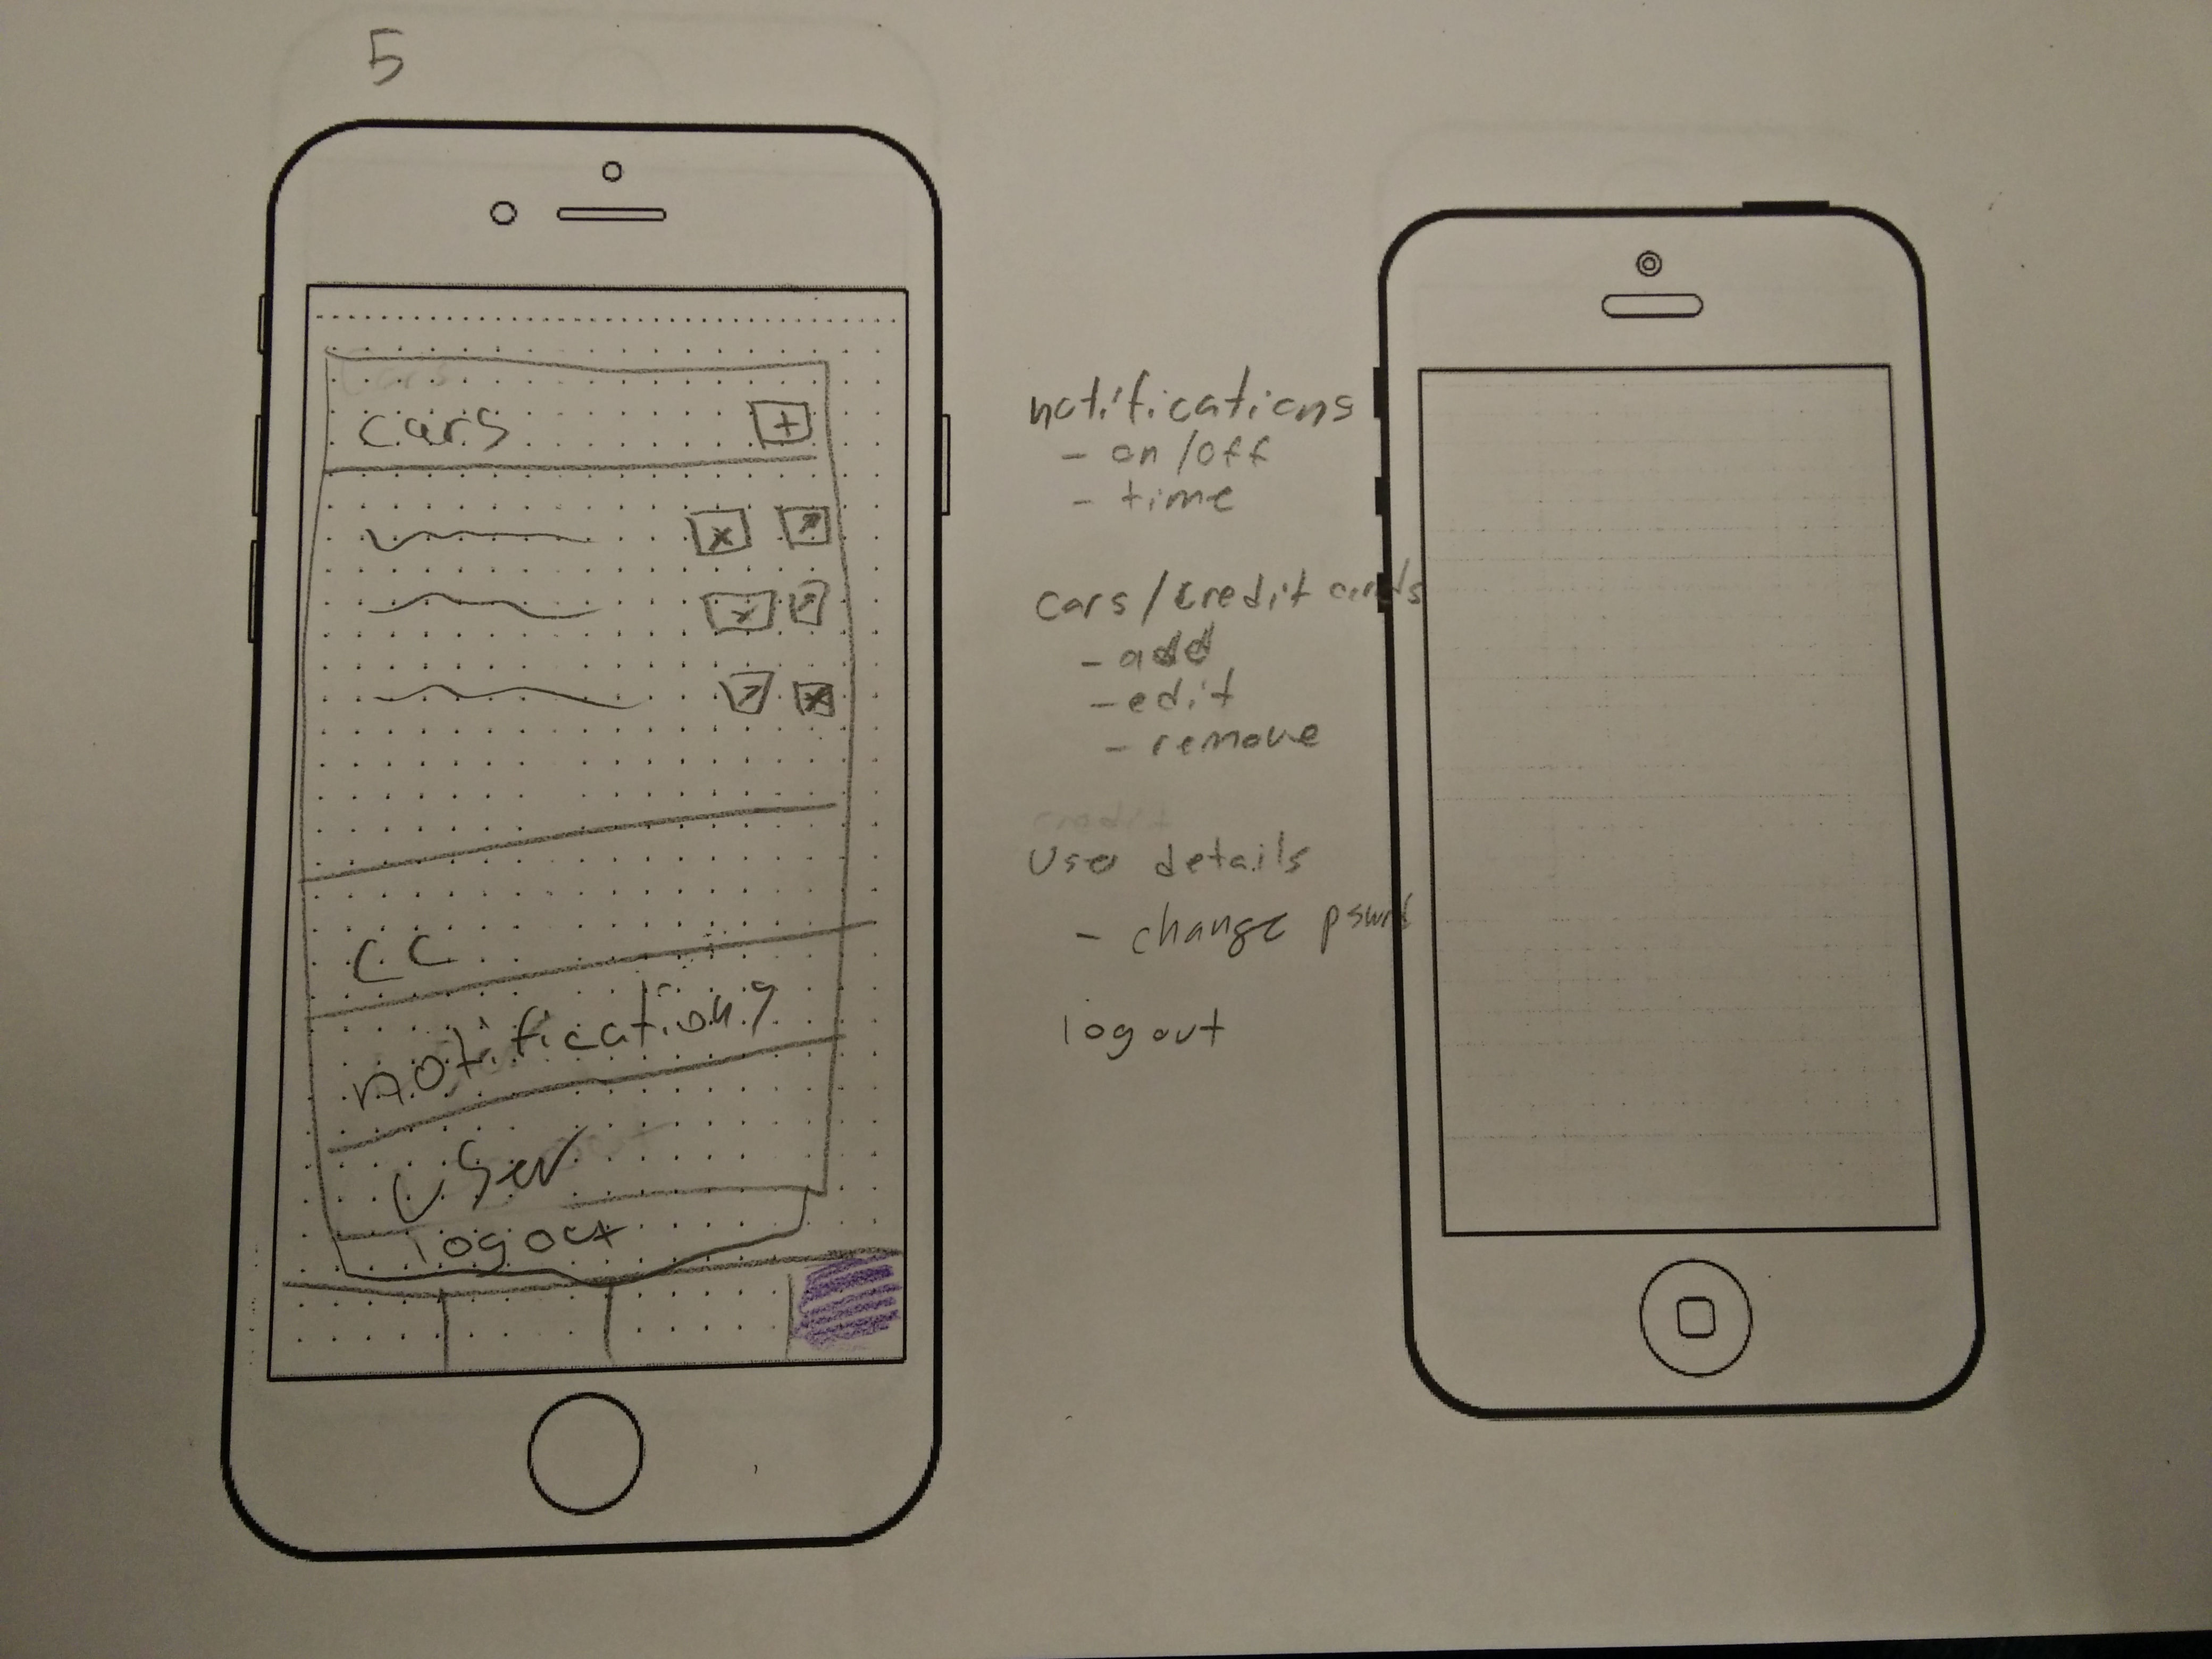 5
cars +
x
x
x
CC
notifications
user
logout
notifications
- on/off
- time
cars/credit cards
- add
- edit
- remove
credit
User details
- change pswd
logout